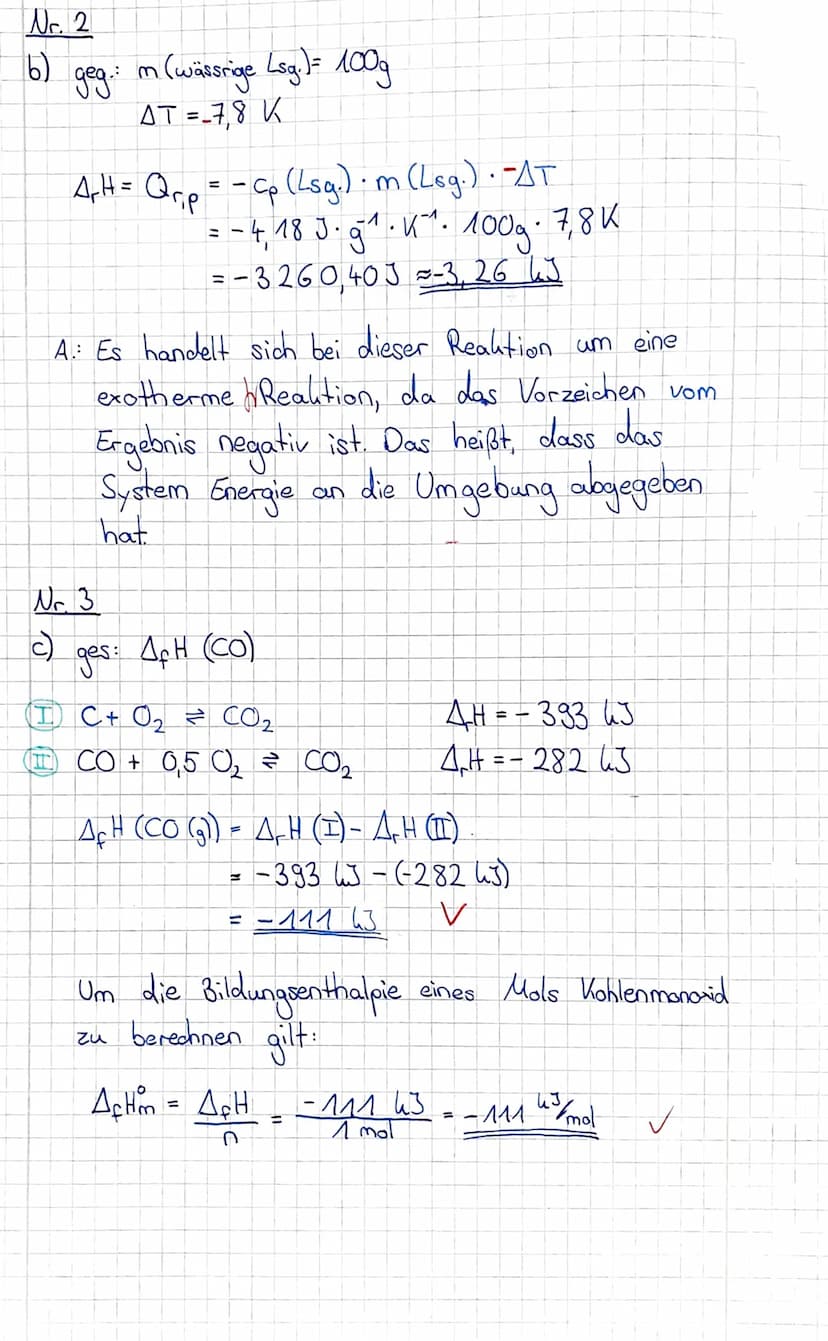 Nr. 2
b) geg.: m (wässrige Lsg.) = 100g
ΔT = -7,8 K
ΔrH = Qr,p = - cp (Lsg.) · m (Lsg.) · -ΔT
= - 4,18 J · g⁻¹ · K⁻¹ · 100g · 7,8 K
= - 3260,40 J ≈ -3,26 kJ
A.: Es handelt sich bei dieser Reaktion um eine
exotherme Reaktion, da das Vorzeichen vom
Ergebnis negativ ist. Das heißt, dass das
System Energie an die Umgebung abgegeben
hat.
Nr. 3
c) ges: ΔfH (CO)
I C + O₂ ⇌ CO₂ ΔrH = - 393 kJ
II CO + 0,5 O₂ ⇌ CO₂ ΔrH = - 282 kJ
ΔfH (CO (g)) = ΔrH (I) - ΔrH (II)
= -393 kJ - (-282 kJ)
= -111 kJ ✓
Um die Bildungsenthalpie eines Mols Kohlenmonoxid
zu berechnen gilt:
ΔfH°m = ΔfH / n = -111 kJ / 1 mol = -111 kJ/mol ✓